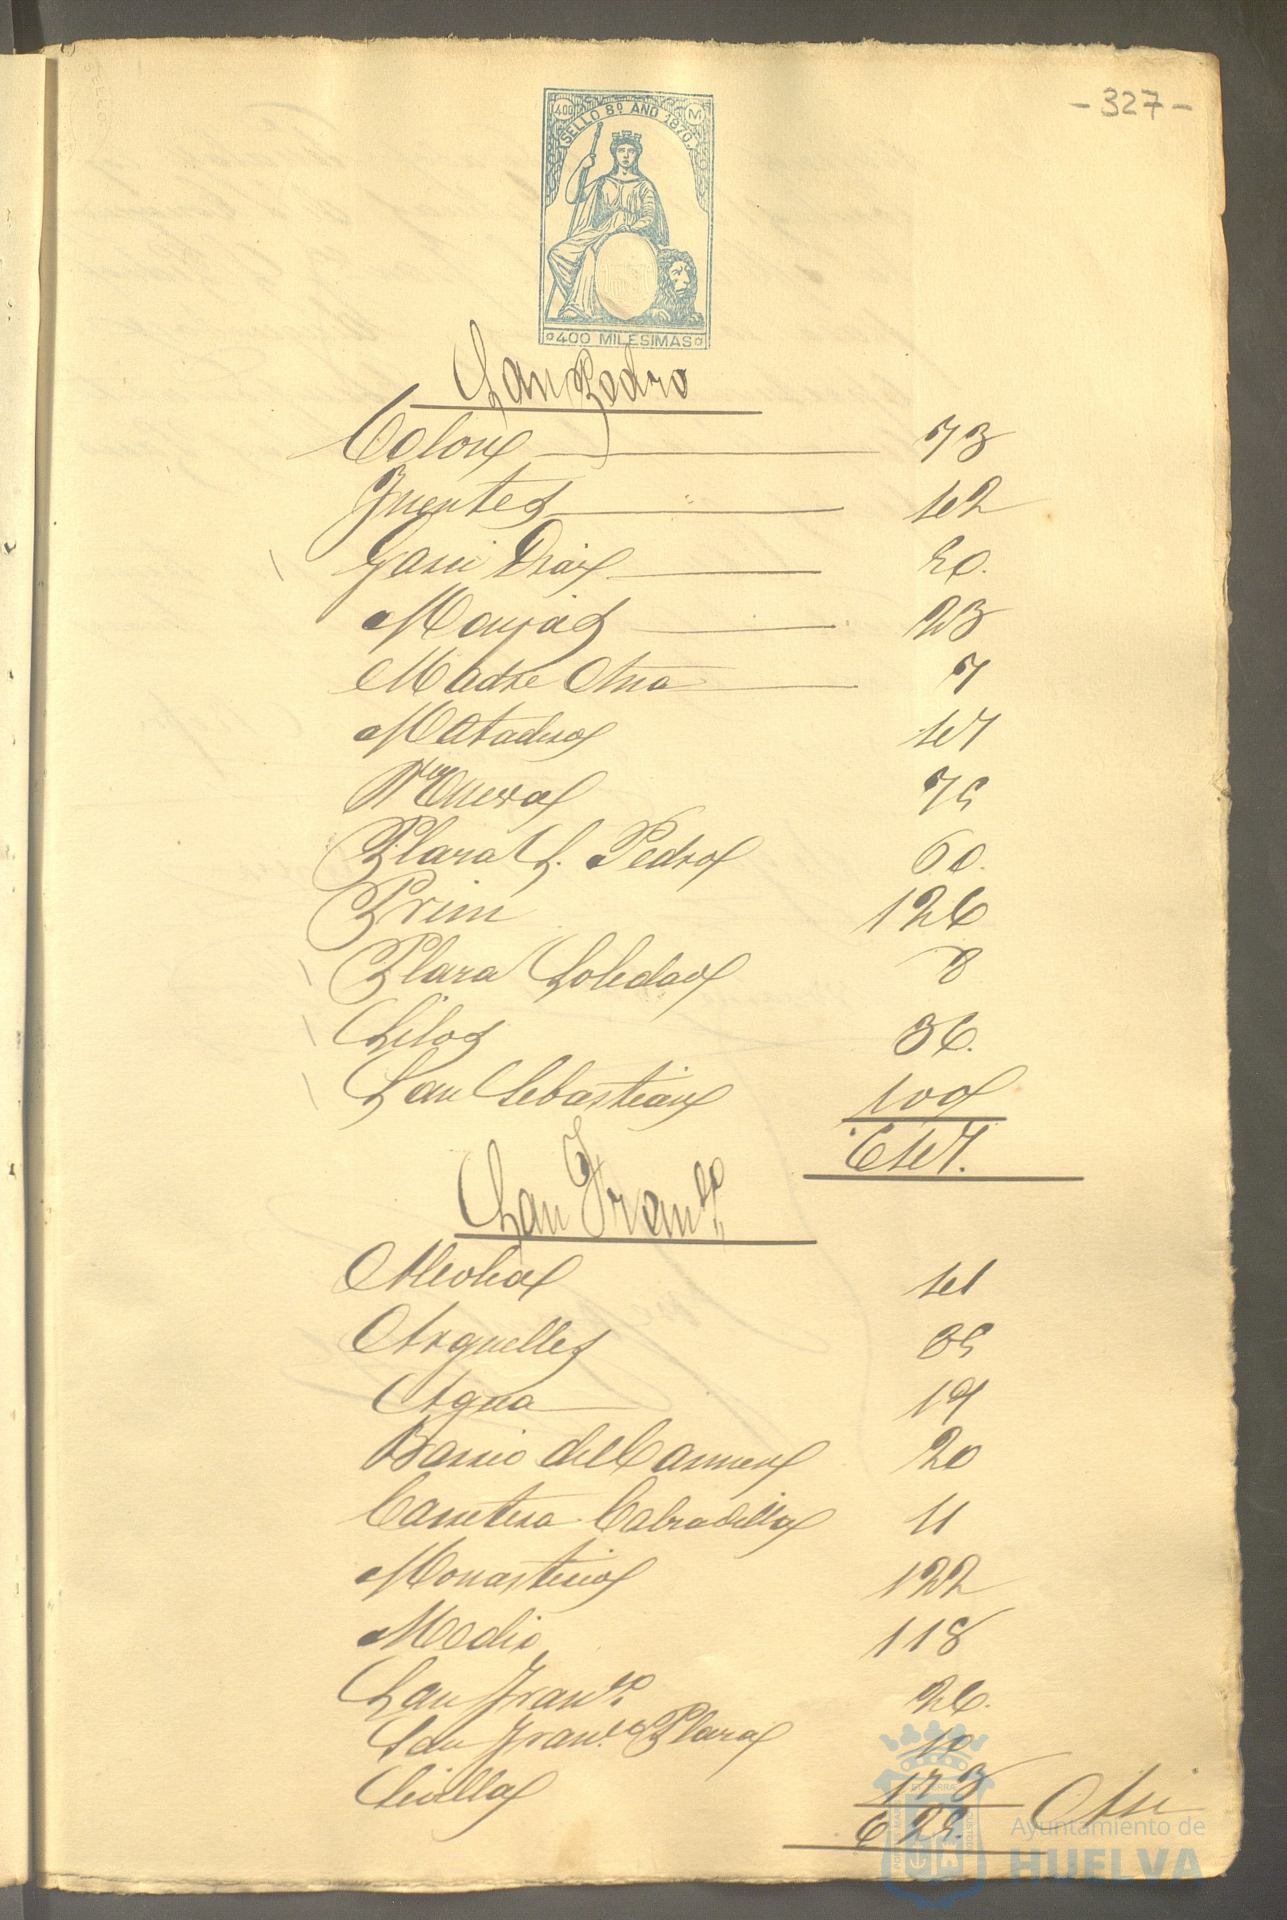 -327-
400 M
SELLO 8º AÑO 1870
400 MILESIMAS
San Pedro
Colon 73
Fuentes 42
Garci Diaz 50.
Monjas 23
Madre Ana 7
Matadero 47
Nueva 75
Plaza S. Pedro 60.
Prim 126
Plaza Soledad 8
Silos 36.
San Sebastian 100
647.
San Franco.
Alcolea 41
Arguelles 35
Agua 19
Barrio del Carmen 20
Carretera Calzadilla 11
Monasterio 122
Medio 118
San Franco. 26.
San Franco. Plaza
Sevilla 173
625. Asi
Ayuntamiento de
HUELVA